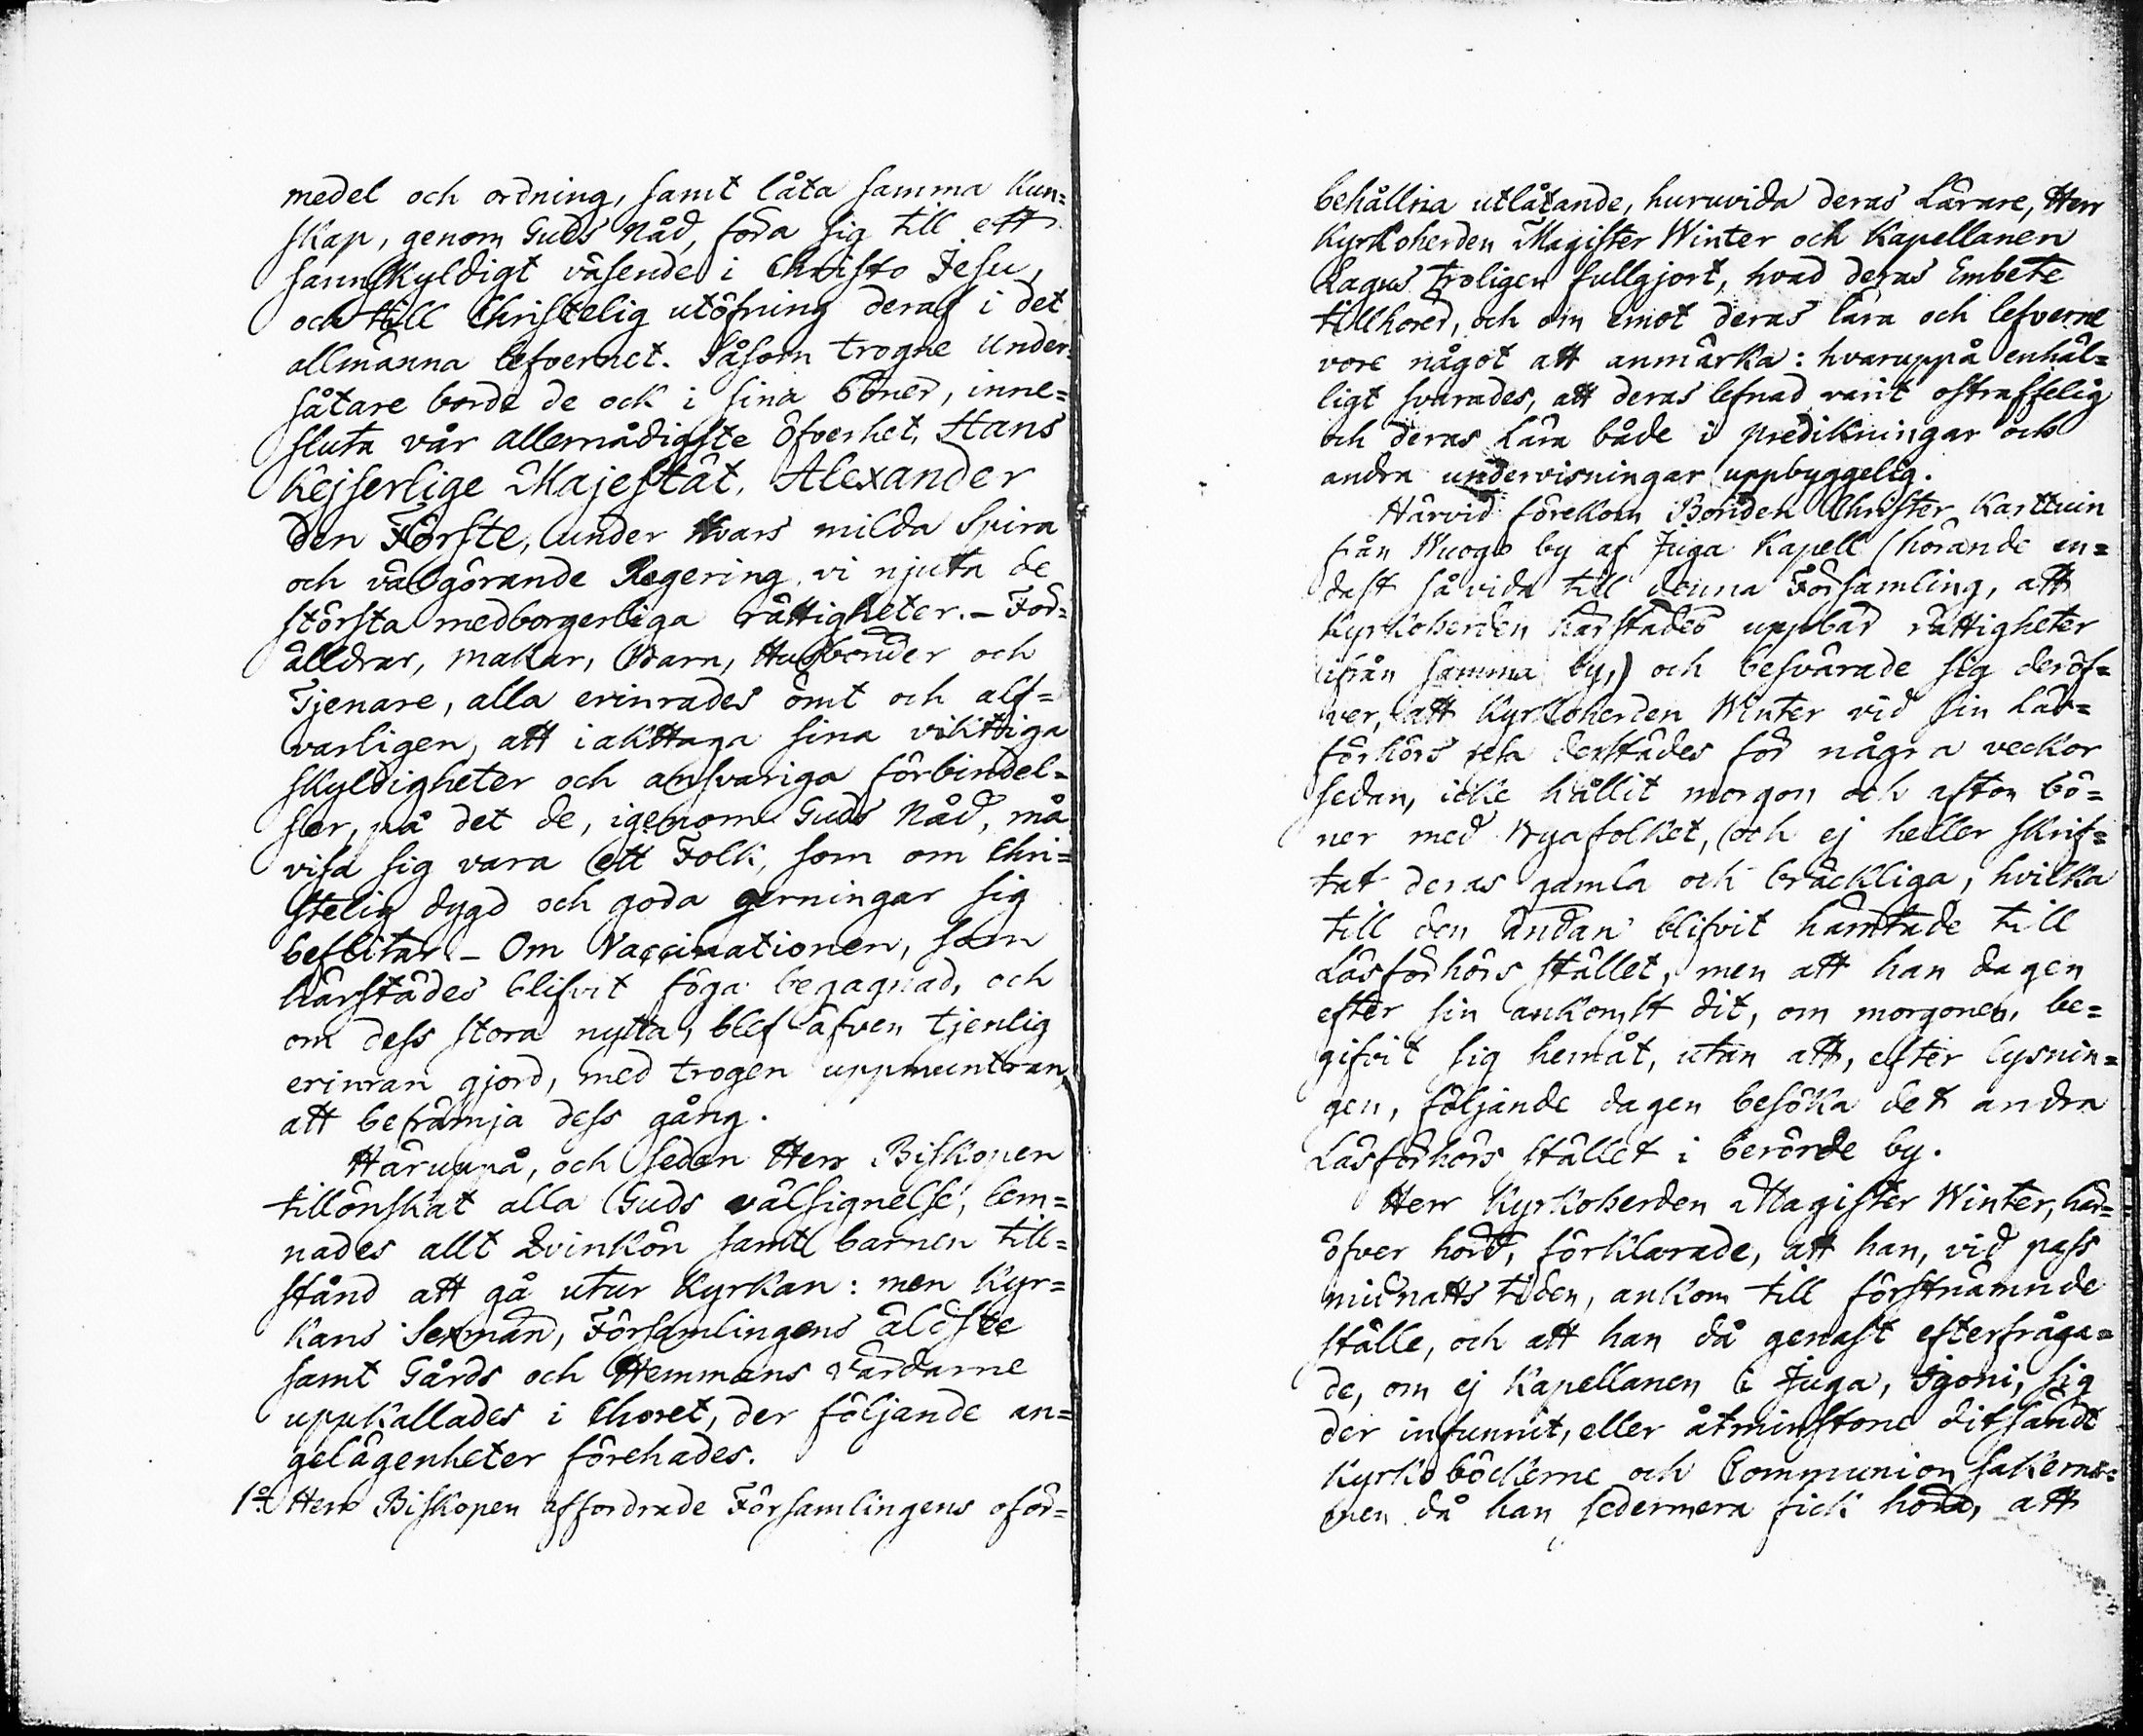 medel och ordning, samt låta samma kun=
skap, genom Guds Nåd, föra sig till ett
sannskyldigt väsende i Christo Jesu,
och till Christelig utöfning deraf i det
allmänna lefvernet. Såsom trogne under=
såtare borde de ock i sina böner, inne=
sluta vår allernådigste Öfverhet, Hans
Kejserlige Majestät, Alexander
den Förste, under hvars milda Spira
och välgörande Regering vi njuta de
största medborgerliga rättigheter. – För=
älldrar, makar, Barn, Husbönder och
Tjenare, alla erinrades ömt och alf=
varligen, att iakttaga sina vikttiga
skyldigheter och ansvariga förbindel=
ser, på det de, igenom Guds Nåd, må
visa sig vara ett Folk, som om Chri=
stelig dygd och goda gerningar sig
beflitar. – Om Vaccinationen, som
härstädes blifvit föga begagnad, och
om dess stora nytta, blef äfven tjenlig
erinran gjord, med trogen uppmuntran,
att befrämja dess gång.
Häruuppå, och sedan Herr Biskopen
tillönskat alla Guds välsignelse, lem=
nades allt Qvinkön samt barnen till=
stånd att gå utur Kyrkan: men Kyr=
kans Sexmän, Församlingens äldste
samt Gårds och Hemmans värdarne
uppkallades i Choret, der följande an=
gelägenheter förehades.
1:o Herr Biskopen affordrade Församlingens oför=
behållna utlåtande, huruvida deras Lärare, Herr
Kyrkoherden Magister Winter och Kapellanen
Lagus troligen fullgjort, hvad deras Embete
tillhörer, och om emot deras lära och lefverne
vore något att anmärka: hvaruppå enhäl=
ligt svarades, att deras lefnad varit ostraffelig
och deras Lära både i predikningar och
andra undervisningar uppbyggelig.
Härvid förekom Bonden Christer Karttuin
från Wuogo by af Juga Kapell (hörande en=
dast såvida till denna Församling, att
Kyrkoherden härstädes uppbär rättigheter
ifrån samma by,) och besvärade sig deröf=
ver, att Kyrkoherden Winter vid sin Läs=
förhörs resa derstädes för några veckor
sedan, icke hållit morgon och afton bö=
ner med Byafolket, och ej heller skrif=
tat deras gamla och bräckliga, hvilka
till den ändan blifvit hämtade till
Läsförhörs stället, men att han dagen
efter sin ankomst dit, om morgonen, be=
gifvit sig hemåt, utan att, efter lysnin=
gen, följande dagen besöka det andra
Läsförhörs stället i berörde by.
Herr Kyrkoherden Magister Winter, här=
öfver hörd, förklarade, att han, vid pass
midnatts tiden, ankom till förstnämnde
ställe, och att han då genast efterfråga=
de, om ej Kapellanen i Juga, Igoni, sig
der infunnit, eller åtminstone ditsändt
Kyrkoböckerne och Communion sakerne:
men då han sedermera fick höra, att